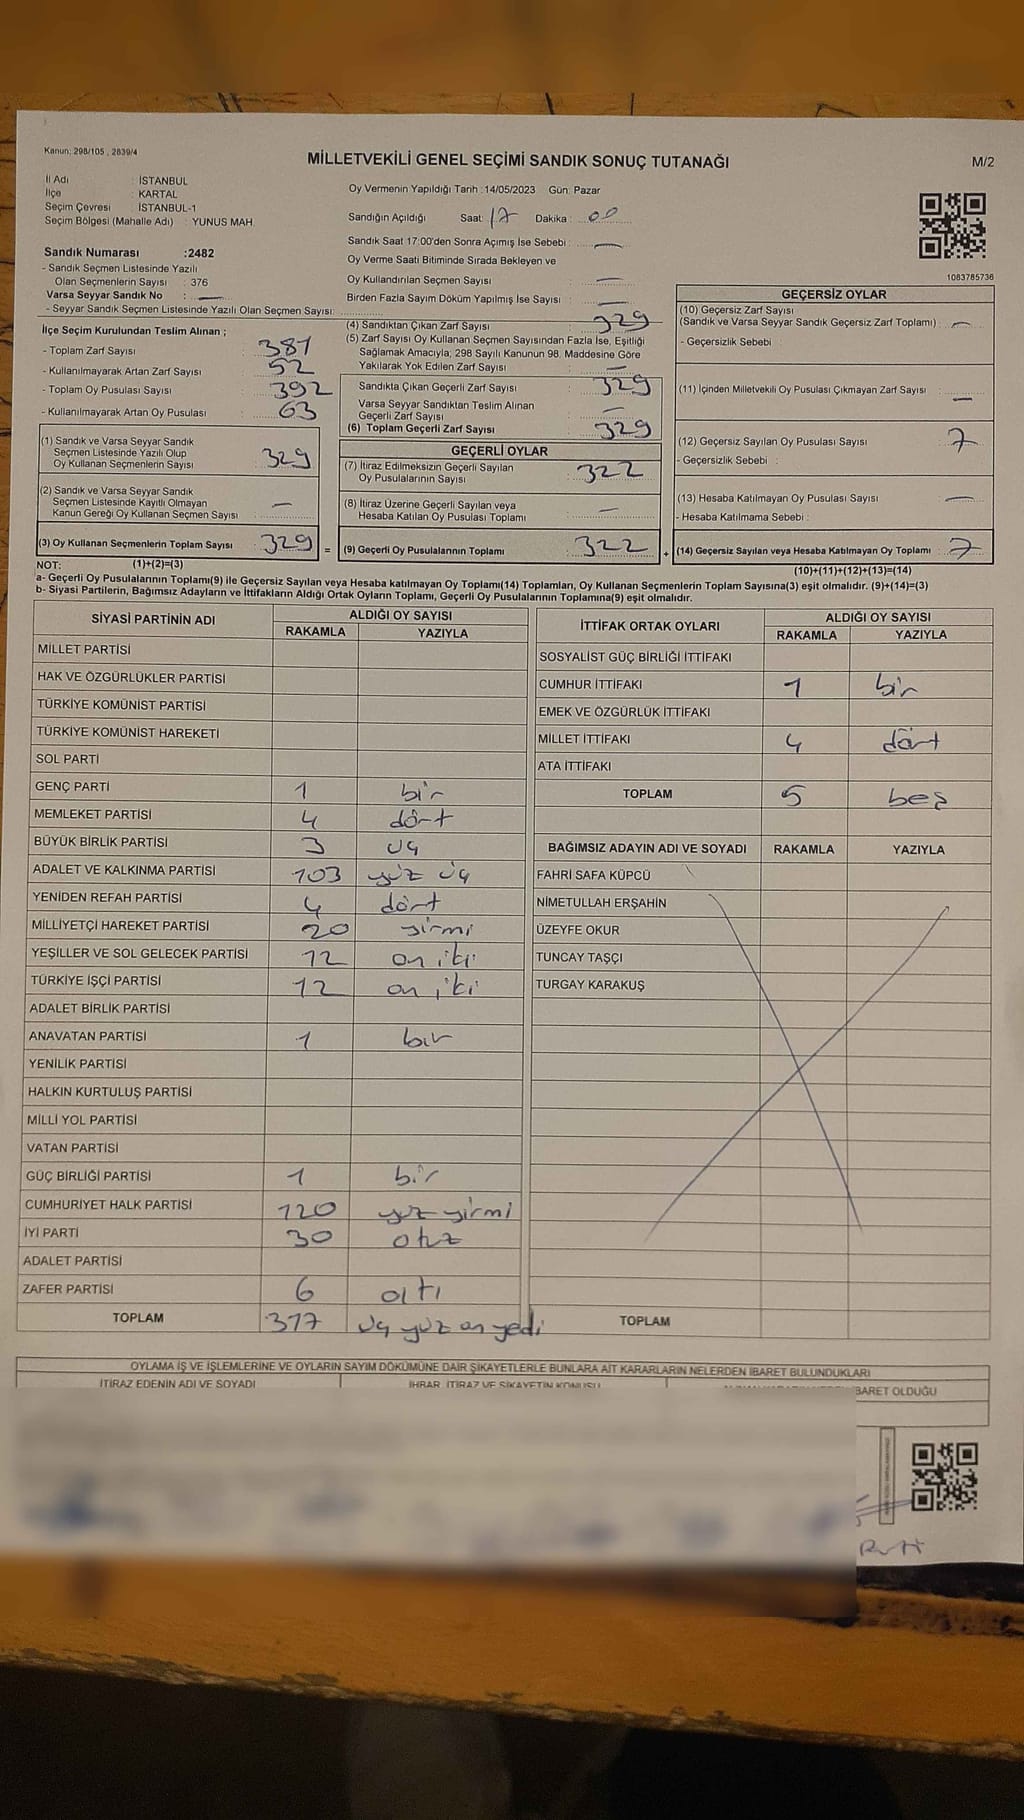 Kanun; 298/105 , 2839/4
MİLLETVEKİLİ GENEL SEÇİMİ SANDIK SONUÇ TUTANAĞI
M/2
İl Adı : İSTANBUL
İlçe : KARTAL
Seçim Çevresi : İSTANBUL-1
Seçim Bölgesi (Mahalle Adı) : YUNUS MAH.
Sandık Numarası :2482
- Sandık Seçmen Listesinde Yazılı
Olan Seçmenlerin Sayısı : 376
Varsa Seyyar Sandık No : —
- Seyyar Sandık Seçmen Listesinde Yazılı Olan Seçmen Sayısı:
Oy Vermenin Yapıldığı Tarih :14/05/2023 Gün: Pazar
Sandığın Açıldığı Saat: 17 Dakika : 00
Sandık Saat 17:00'den Sonra Açımış İse Sebebi : —
Oy Verme Saati Bitiminde Sırada Bekleyen ve
Oy Kullandırılan Seçmen Sayısı : —
Birden Fazla Sayım Döküm Yapılmış İse Sayısı : —
1083785736
İlçe Seçim Kurulundan Teslim Alınan ;
- Toplam Zarf Sayısı : 381
- Kullanılmayarak Artan Zarf Sayısı : 52
- Toplam Oy Pusulası Sayısı : 392
- Kullanılmayarak Artan Oy Pusulası : 63
(1) Sandık ve Varsa Seyyar Sandık
Seçmen Listesinde Yazılı Olup
Oy Kullanan Seçmenlerin Sayısı : 329
(2) Sandık ve Varsa Seyyar Sandık
Seçmen Listesinde Kayıtlı Olmayan
Kanun Gereği Oy Kullanan Seçmen Sayısı : —
(3) Oy Kullanan Seçmenlerin Toplam Sayısı : 329 =
(4) Sandıktan Çıkan Zarf Sayısı : 329
(5) Zarf Sayısı Oy Kullanan Seçmen Sayısından Fazla İse, Eşitliği
Sağlamak Amacıyla, 298 Sayılı Kanunun 98. Maddesine Göre
Yakılarak Yok Edilen Zarf Sayısı : —
Sandıkta Çıkan Geçerli Zarf Sayısı : 329
Varsa Seyyar Sandıktan Teslim Alınan
Geçerli Zarf Sayısı : —
(6) Toplam Geçerli Zarf Sayısı : 329
GEÇERLİ OYLAR
(7) İtiraz Edilmeksizin Geçerli Sayılan
Oy Pusulalarının Sayısı : 322
(8) İtiraz Üzerine Geçerli Sayılan veya
Hesaba Katılan Oy Pusulası Toplamı : —
(9) Geçerli Oy Pusulalarının Toplamı : 322 +
GEÇERSİZ OYLAR
(10) Geçersiz Zarf Sayısı
(Sandık ve Varsa Seyyar Sandık Geçersiz Zarf Toplamı) : —
- Geçersizlik Sebebi :
(11) İçinden Milletvekili Oy Pusulası Çıkmayan Zarf Sayısı : —
(12) Geçersiz Sayılan Oy Pusulası Sayısı : 7
- Geçersizlik Sebebi :
(13) Hesaba Katılmayan Oy Pusulası Sayısı : —
- Hesaba Katılmama Sebebi :
(14) Geçersiz Sayılan veya Hesaba Katılmayan Oy Toplamı : 7
NOT: (1)+(2)=(3)
(10)+(11)+(12)+(13)=(14)
a- Geçerli Oy Pusulalarının Toplamı(9) ile Geçersiz Sayılan veya Hesaba katılmayan Oy Toplamı(14) Toplamları, Oy Kullanan Seçmenlerin Toplam Sayısına(3) eşit olmalıdır. (9)+(14)=(3)
b- Siyasi Partilerin, Bağımsız Adayların ve İttifakların Aldığı Ortak Oyların Toplamı, Geçerli Oy Pusulalarının Toplamına(9) eşit olmalıdır.
SİYASİ PARTİNİN ADI
ALDIĞI OY SAYISI
RAKAMLA YAZIYLA
MİLLET PARTİSİ
HAK VE ÖZGÜRLÜKLER PARTİSİ
TÜRKİYE KOMÜNİST PARTİSİ
TÜRKİYE KOMÜNİST HAREKETİ
SOL PARTİ
GENÇ PARTİ 1 bir
MEMLEKET PARTİSİ 4 dört
BÜYÜK BİRLİK PARTİSİ 3 üç
ADALET VE KALKINMA PARTİSİ 103 yüz üç
YENİDEN REFAH PARTİSİ 4 dört
MİLLİYETÇİ HAREKET PARTİSİ 20 yirmi
YEŞİLLER VE SOL GELECEK PARTİSİ 12 on iki
TÜRKİYE İŞÇİ PARTİSİ 12 on iki
ADALET BİRLİK PARTİSİ
ANAVATAN PARTİSİ 1 bir
YENİLİK PARTİSİ
HALKIN KURTULUŞ PARTİSİ
MİLLİ YOL PARTİSİ
VATAN PARTİSİ
GÜÇ BİRLİĞİ PARTİSİ 1 bir
CUMHURİYET HALK PARTİSİ 120 yüz yirmi
İYİ PARTİ 30 otuz
ADALET PARTİSİ
ZAFER PARTİSİ 6 altı
TOPLAM 317 üç yüz on yedi
İTTİFAK ORTAK OYLARI
ALDIĞI OY SAYISI
RAKAMLA YAZIYLA
SOSYALİST GÜÇ BİRLİĞİ İTTİFAKI
CUMHUR İTTİFAKI 1 bir
EMEK VE ÖZGÜRLÜK İTTİFAKI
MİLLET İTTİFAKI 4 dört
ATA İTTİFAKI
TOPLAM 5 beş
BAĞIMSIZ ADAYIN ADI VE SOYADI RAKAMLA YAZIYLA
FAHRİ SAFA KÜPCÜ
NİMETULLAH ERŞAHİN
ÜZEYFE OKUR
TUNCAY TAŞÇI
TURGAY KARAKUŞ
TOPLAM
OYLAMA İŞ VE İŞLEMLERİNE VE OYLARIN SAYIM DÖKÜMÜNE DAİR ŞİKAYETLERLE BUNLARA AİT KARARLARIN NELERDEN İBARET BULUNDUKLARI
İTİRAZ EDENİN ADI VE SOYADI
İHBAR, İTİRAZ VE ŞİKAYETİN KONUSU
İBARET OLDUĞU